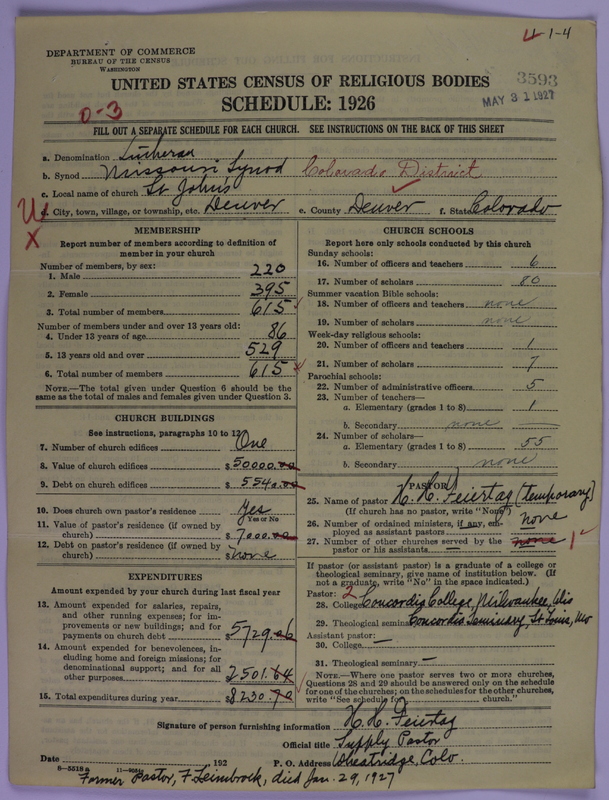 U 1-4
DEPARTMENT OF COMMERCE
BUREAU OF THE CENSUS
WASHINGTON
UNITED STATES CENSUS OF RELIGIOUS BODIES
3593
SCHEDULE: 1926
MAY 31 1927
0-3
FILL OUT A SEPARATE SCHEDULE FOR EACH CHURCH. SEE INSTRUCTIONS ON THE BACK OF THIS SHEET
a. Denomination Lutheran
b. Synod Missouri Synod Colorado District
c. Local name of church St Johns
d. City, town, village, or township, etc. Denver e. County Denver f. State Colorado
MEMBERSHIP
Report number of members according to definition of
member in your church
Number of members, by sex:
1. Male 220
2. Female 395
3. Total number of members 615
Number of members under and over 13 years old:
4. Under 13 years of age 86
5. 13 years old and over 529
6. Total number of members 615
NOTE.—The total given under Question 6 should be the
same as the total of males and females given under Question 3.
CHURCH BUILDINGS
See instructions, paragraphs 10 to 12
7. Number of church edifices One
8. Value of church edifices $50000.00
9. Debt on church edifices $5540.00
10. Does church own pastor's residence? Yes
Yes or No
11. Value of pastor's residence (if owned by
church) $7000.00
12. Debt on pastor's residence (if owned by
church) $none
EXPENDITURES
Amount expended by your church during last fiscal year
13. Amount expended for salaries, repairs,
and other running expenses; for im-
provements or new buildings; and for
payments on church debt $5729.06
14. Amount expended for benevolences, in-
cluding home and foreign missions; for
denominational support; and for all
other purposes 2501.64
15. Total expenditures during year $8230.70
CHURCH SCHOOLS
Report here only schools conducted by this church
Sunday schools:
16. Number of officers and teachers 6
17. Number of scholars 80
Summer vacation Bible schools:
18. Number of officers and teachers none
19. Number of scholars none
Week-day religious schools:
20. Number of officers and teachers 1
21. Number of scholars 7
Parochial schools:
22. Number of administrative officers 5
23. Number of teachers—
a. Elementary (grades 1 to 8) 1
b. Secondary none
24. Number of scholars—
a. Elementary (grades 1 to 8) 55
b. Secondary none
PASTOR
25. Name of pastor H. H. Feiertag (temporary)
(If church has no pastor, write "None")
26. Number of ordained ministers, if any, em-
ployed as assistant pastors none
27. Number of other churches served by the
pastor or his assistants none 1
If pastor (or assistant pastor) is a graduate of a college or
theological seminary, give name of institution below. (If
not a graduate, write "No" in the space indicated.)
Pastor: 2
28. College Concordia College, Milwaukee, Wis
29. Theological seminary Concordia Seminary, St Louis, Mo
Assistant pastor:
30. College —
31. Theological seminary —
NOTE.—Where one pastor serves two or more churches,
Questions 28 and 29 should be answered only on the schedule
for one of the churches; on the schedules for the other churches,
write "See schedule for church."
Signature of person furnishing information H. H. Feiertag
Official title Supply Pastor
Date 192 P. O. Address Wheatridge, Colo.
8-5518a
Former Pastor, F Leimbrock, died Jan. 29, 1927